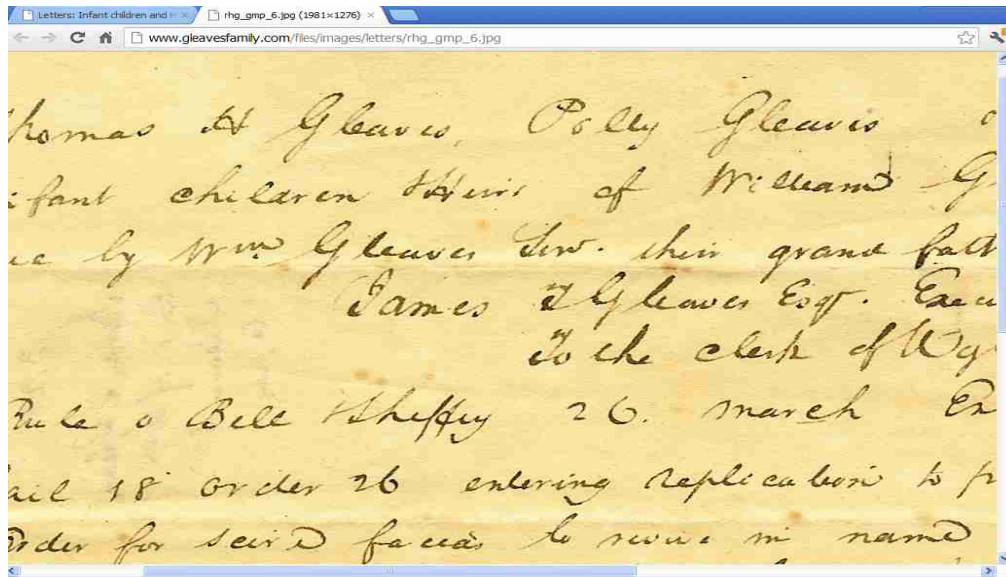 Letters: Infant children and
rhg_gmp_6.jpg (1981×1276)
www.gleavesfamily.com/files/images/letters/rhg_gmp_6.jpg
homas H Gleaves, Polly Gleaves
fant children Heirs of William G
by Wm Gleaves Senr. their grand fath
James T Gleaves Esqr. Execu
To the clerk of Wy
Rule o Bill Sheffey 26. march En
ail 18 order 26 entering replication to pr
order for scire facias to revive in name